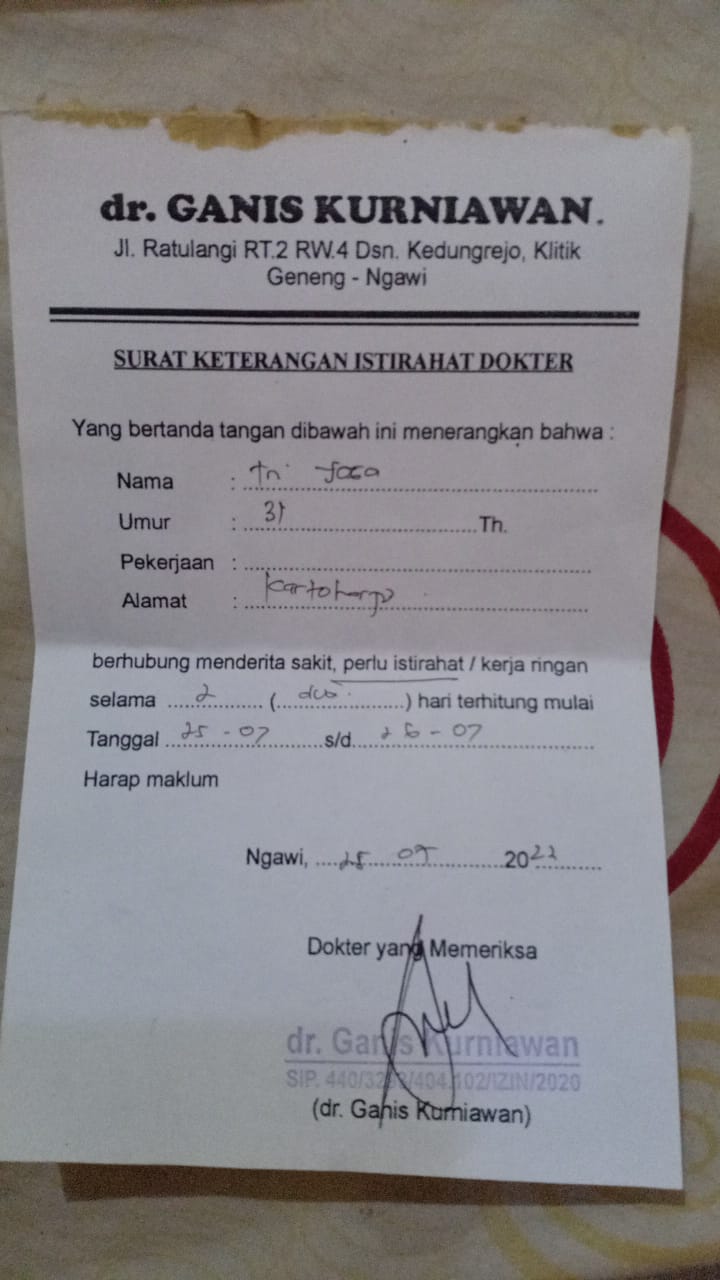 dr. GANIS KURNIAWAN.
Jl. Ratulangi RT.2 RW.4 Dsn. Kedungrejo, Klitik
Geneng - Ngawi
SURAT KETERANGAN ISTIRAHAT DOKTER
Yang bertanda tangan dibawah ini menerangkan bahwa :
Nama : Tri
Umur : 31 Th.
Pekerjaan :
Alamat : Kartoharjo
berhubung menderita sakit, perlu istirahat / kerja ringan
selama 2 (dua) hari terhitung mulai
Tanggal 25-07 s/d 26-07
Harap maklum
Ngawi, 25 07 2022
Dokter yang Memeriksa
dr. Ganis Kurniawan
SIP. 440/404.102/IZIN/2020
(dr. Ganis Kurniawan)